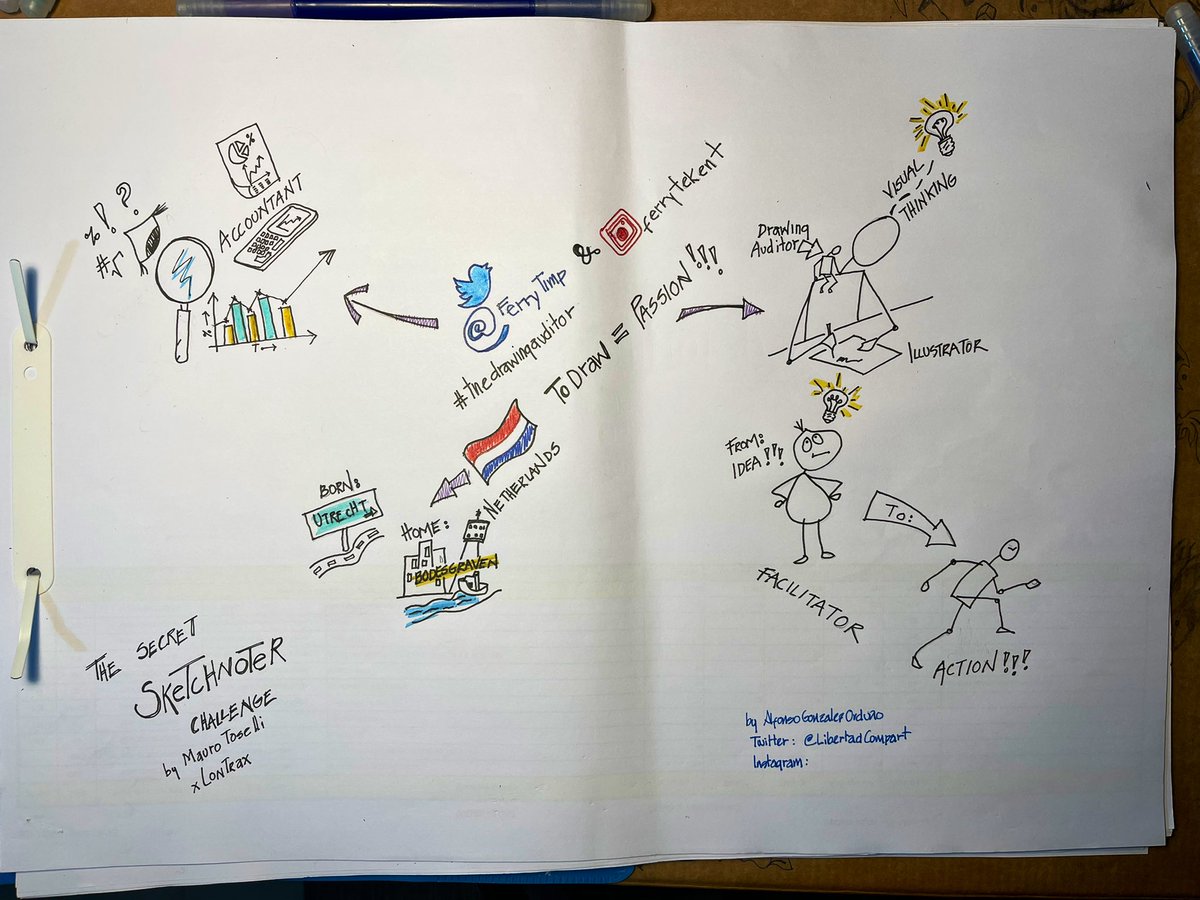 % ! . ?
#√
%
ACCOUNTANT
T
@FerryTimp
&
ferrytekent
#thedrawingauditor
To DRAW = PASSION!!!
NETHERLANDS
BORN:
UTRECHT
HOME:
BODESGRAVEN
VISUAL
THINKING
Drawing
Auditor
ILLUSTRATOR
FROM:
IDEA!!!
TO:
FACILITATOR
ACTION!!!
THE SECRET
SKETCHNOTER
CHALLENGE
by Mauro Toselli
x LonTrax
by Alfonso Gonzalez Orduño
Twitter: @LibertadCompart
Instagram: